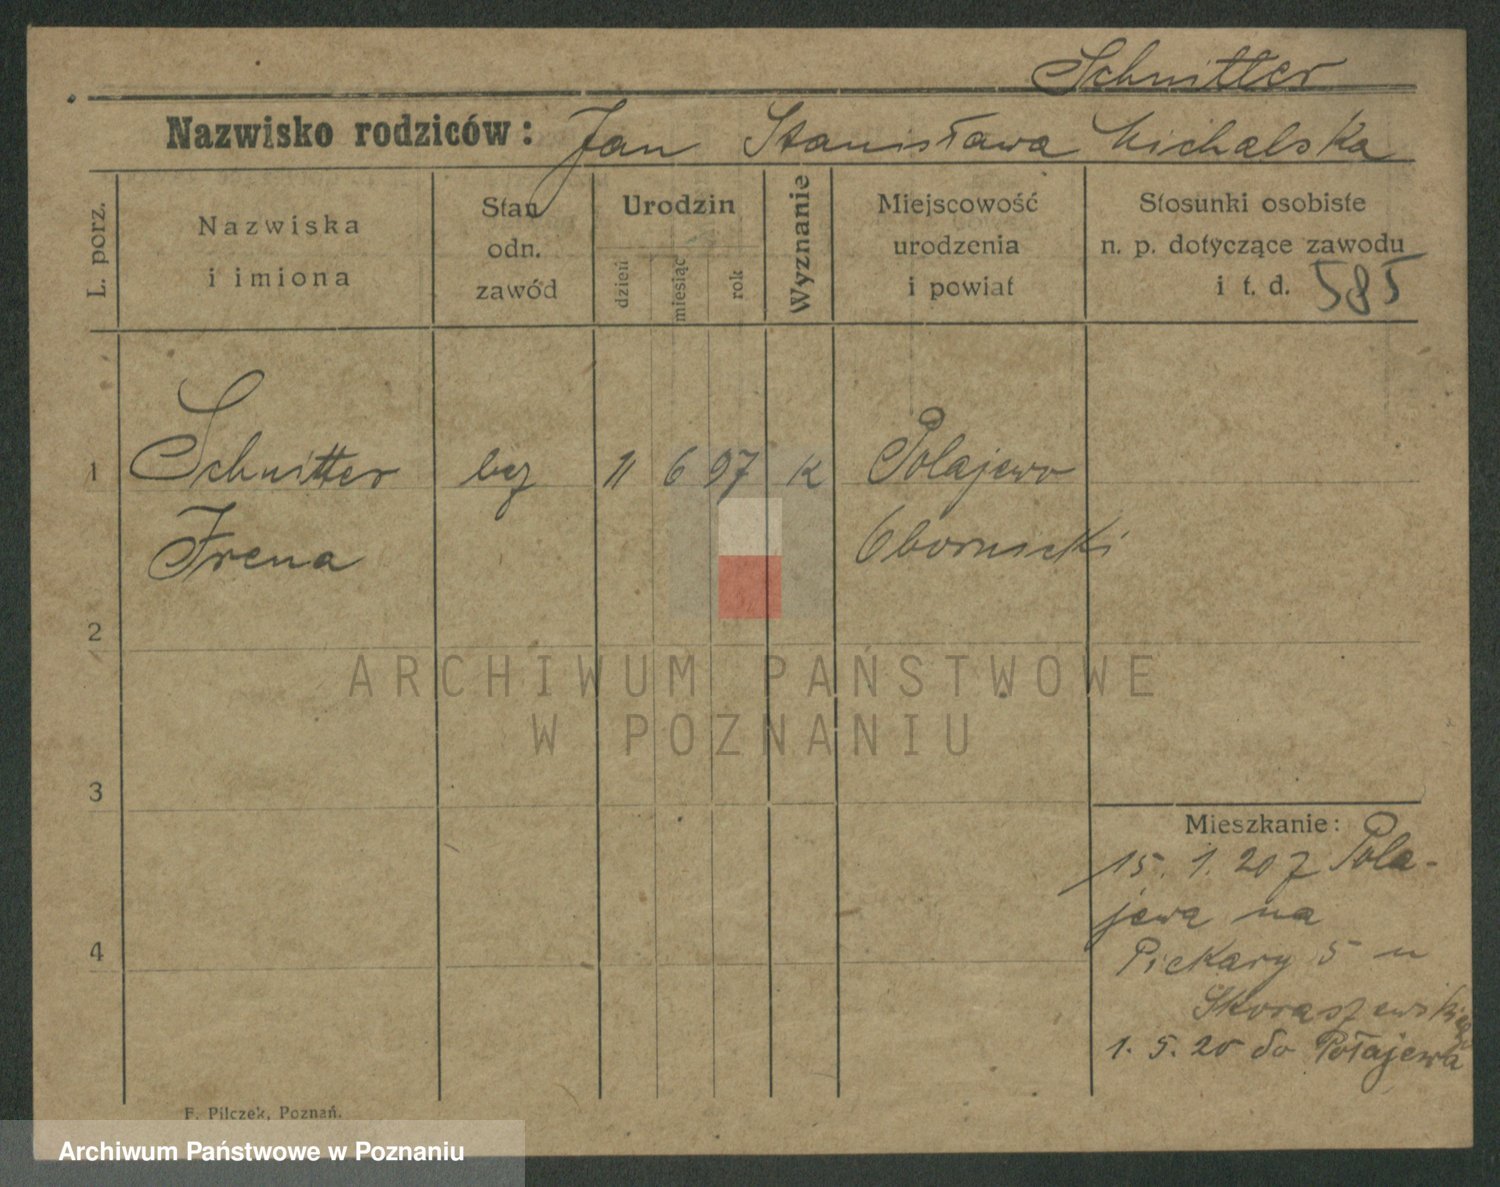 Schnitter
Nazwisko rodziców: Jan Stanisława Michalska
L. porz.
Nazwiska
i imiona
Stan
odn.
zawód
Urodzin
dzień
miesiąc
rok
Wyznanie
Miejscowość
urodzenia
i powiat
Stosunki osobiste
n. p. dotyczące zawodu
i t. d. 585
1 Schnitter bez 11 6 97 k Polajewo
Irena Obornicki
2
ARCHIWUM PAŃSTWOWE
W POZNANIU
3
Mieszkanie:
15. 1. 20 z Pola-
jewa na
4
Piekary 5 u
Skoraszewskiej
1. 5. 20 do Połajewa
F. Pilczek, Poznań.
Archiwum Państwowe w Poznaniu